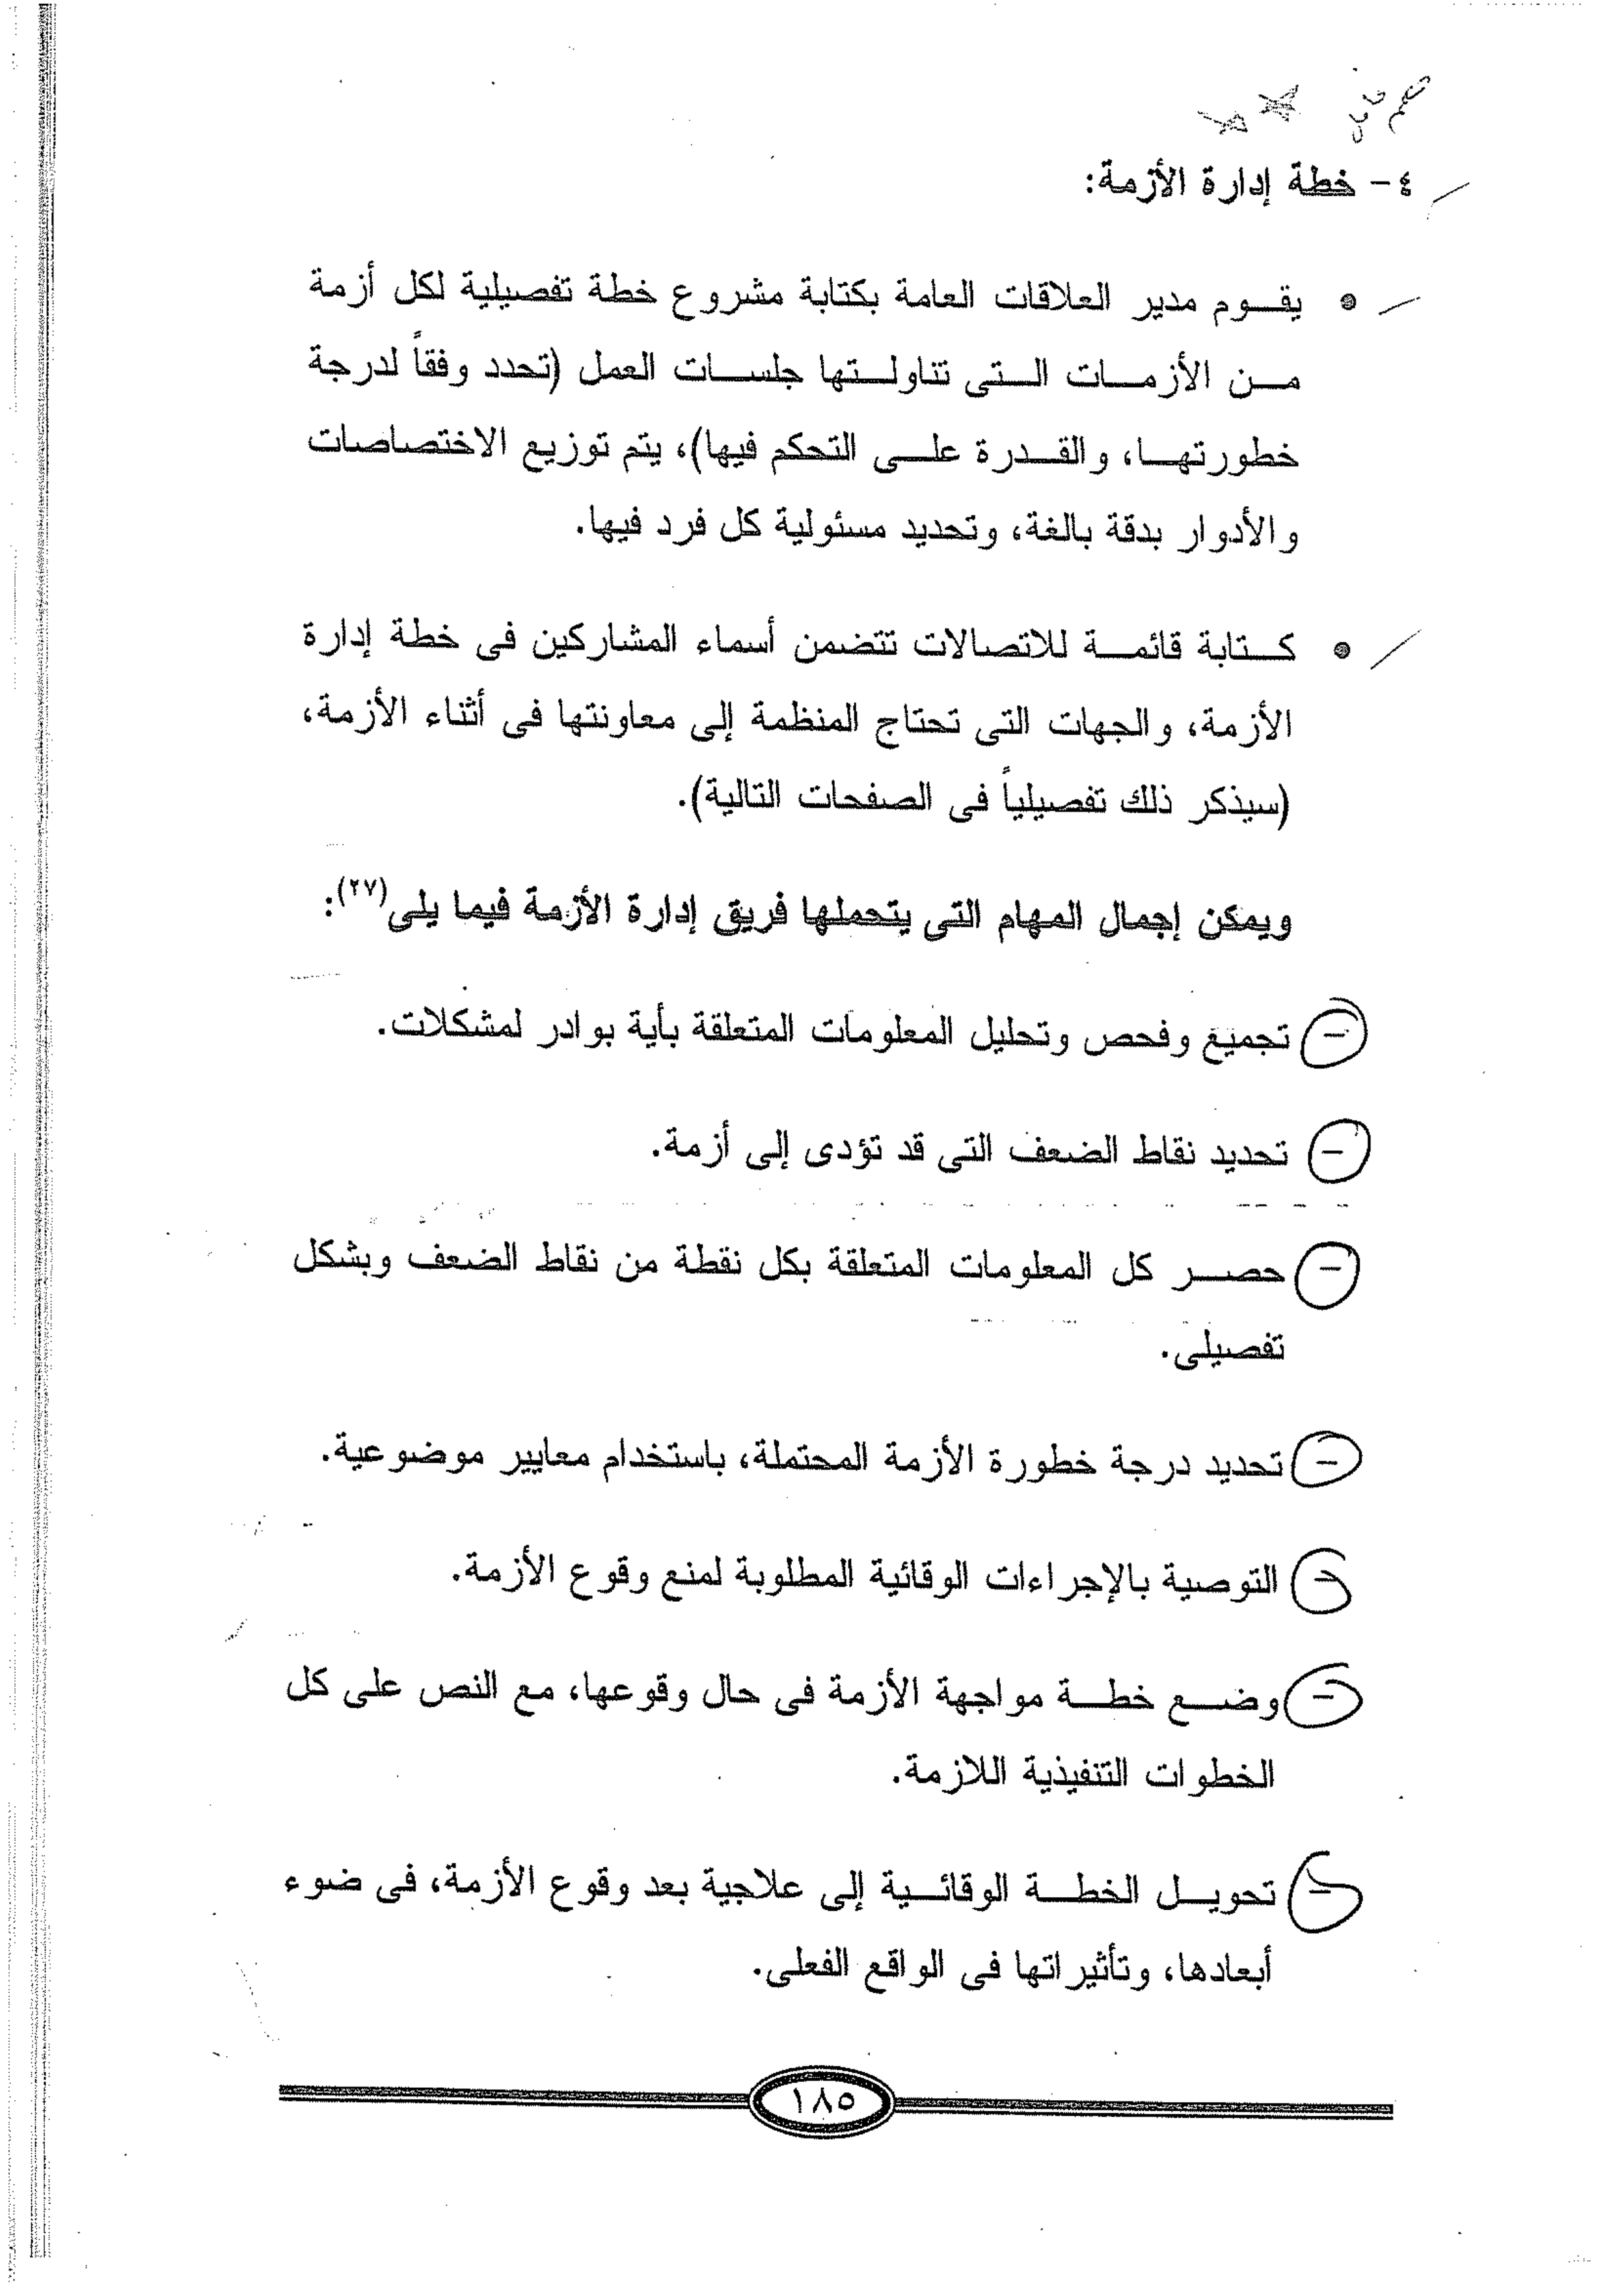 ٤- خطة إدارة الأزمة:
• يقوم مدير العلاقات العامة بكتابة مشروع خطة تفصيلية لكل أزمة
من الأزمات التى تناولتها جلسات العمل (تحدد وفقاً لدرجة
خطورتها، والقدرة على التحكم فيها)، يتم توزيع الاختصاصات
والأدوار بدقة بالغة، وتحديد مسئولية كل فرد فيها.
• كتابة قائمة للاتصالات تتضمن أسماء المشاركين فى خطة إدارة
الأزمة، والجهات التى تحتاج المنظمة إلى معاونتها فى أثناء الأزمة،
(سيذكر ذلك تفصيلياً فى الصفحات التالية).
ويمكن إجمال المهام التى يتحملها فريق إدارة الأزمة فيما يلى(٢٧):
- تجميع وفحص وتحليل المعلومات المتعلقة بأية بوادر لمشكلات.
- تحديد نقاط الضعف التى قد تؤدى إلى أزمة.
- حصر كل المعلومات المتعلقة بكل نقطة من نقاط الضعف وبشكل
تفصيلى.
- تحديد درجة خطورة الأزمة المحتملة، باستخدام معايير موضوعية.
- التوصية بالإجراءات الوقائية المطلوبة لمنع وقوع الأزمة.
- وضع خطة مواجهة الأزمة فى حال وقوعها، مع النص على كل
الخطوات التنفيذية اللازمة.
- تحويل الخطة الوقائية إلى علاجية بعد وقوع الأزمة، فى ضوء
أبعادها، وتأثيراتها فى الواقع الفعلى.
١٨٥